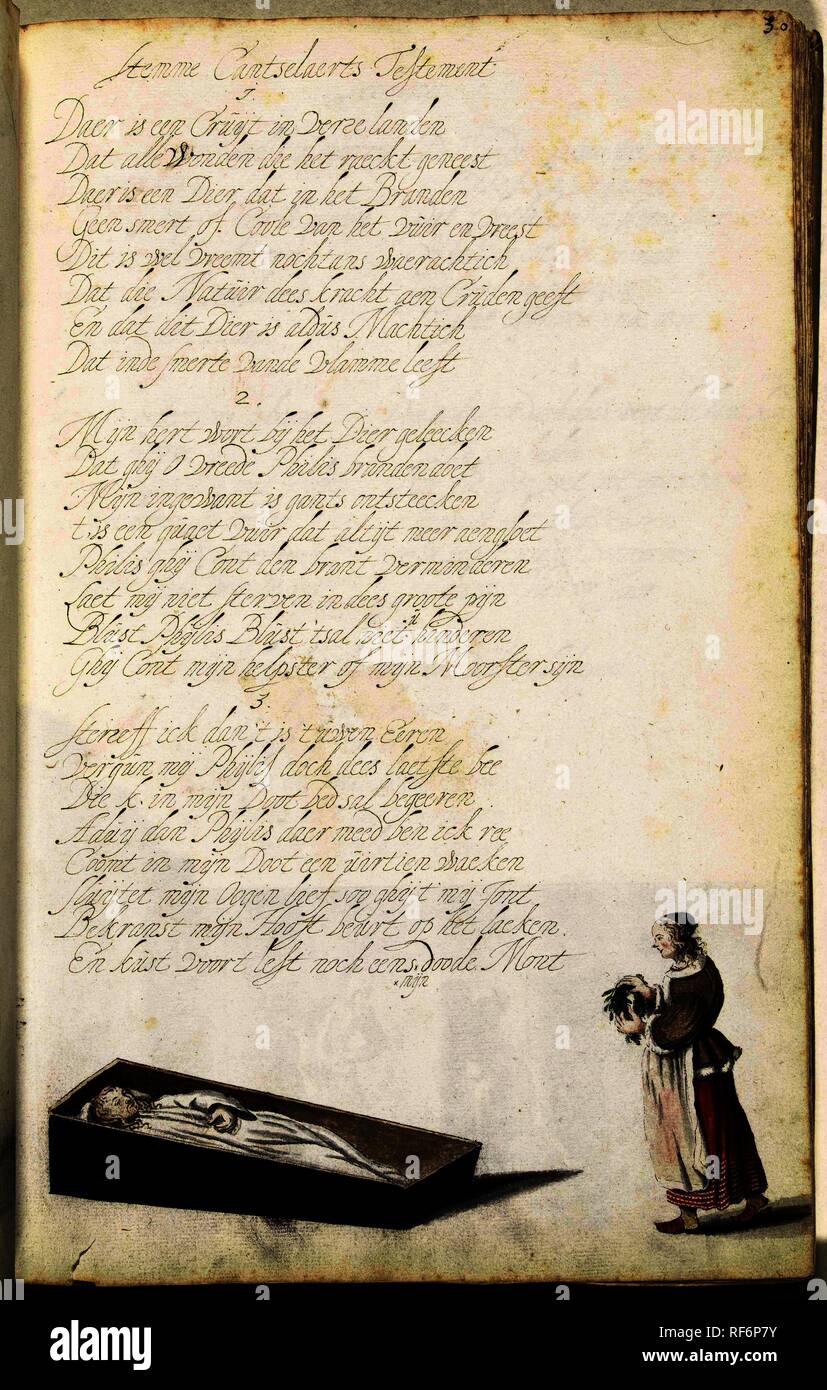 30
Stemme Cantselaerts Testement
1.
Daer is een Cruijt in verre landen
Dat alle Wonden die het raeckt geneest
Daer is een Dier dat in het Branden
Geen smert of Coole van het vuir en vreest
Dit is wel vreemt nochtans waerachtich
Dat die Natuir dees kracht aen Cruden geeft
En dat dit Dier is aldus Machtich
Dat inde smerte vande vlamme leeft
2.
Mijn hert wort bij het Dier geleecken
Dat ghij O vreede Philis branden doet
Mijn ingewant is gants ontsteecken
t is een quaet vuir dat altijt meer aengloet
Philis ghij Cont den brant verminderen
Laet mij niet sterven in dees groote pijn
Blust Phijlis Blust tsal niet u hinderen
Ghij Cont mijn helpster of mijn Moorster sijn
3.
Sterreff ick dan t is t uwen Eeren
Vergun mij Phijlis doch dees laetste bee
Die k in mijn Doot bed sal begeeren
Aduij dan Phijlis daer meed ben ick ree
Coomt in mijn Doot een uirtien waeken
Sluijtet mijn Oogen lief soo ghijt mij Jont
Bekranst mijn Hooft beurt op het laeken
En kust voort lest noch eens mijn doode Mont
alamy
RF6P7Y
www.alamy.com